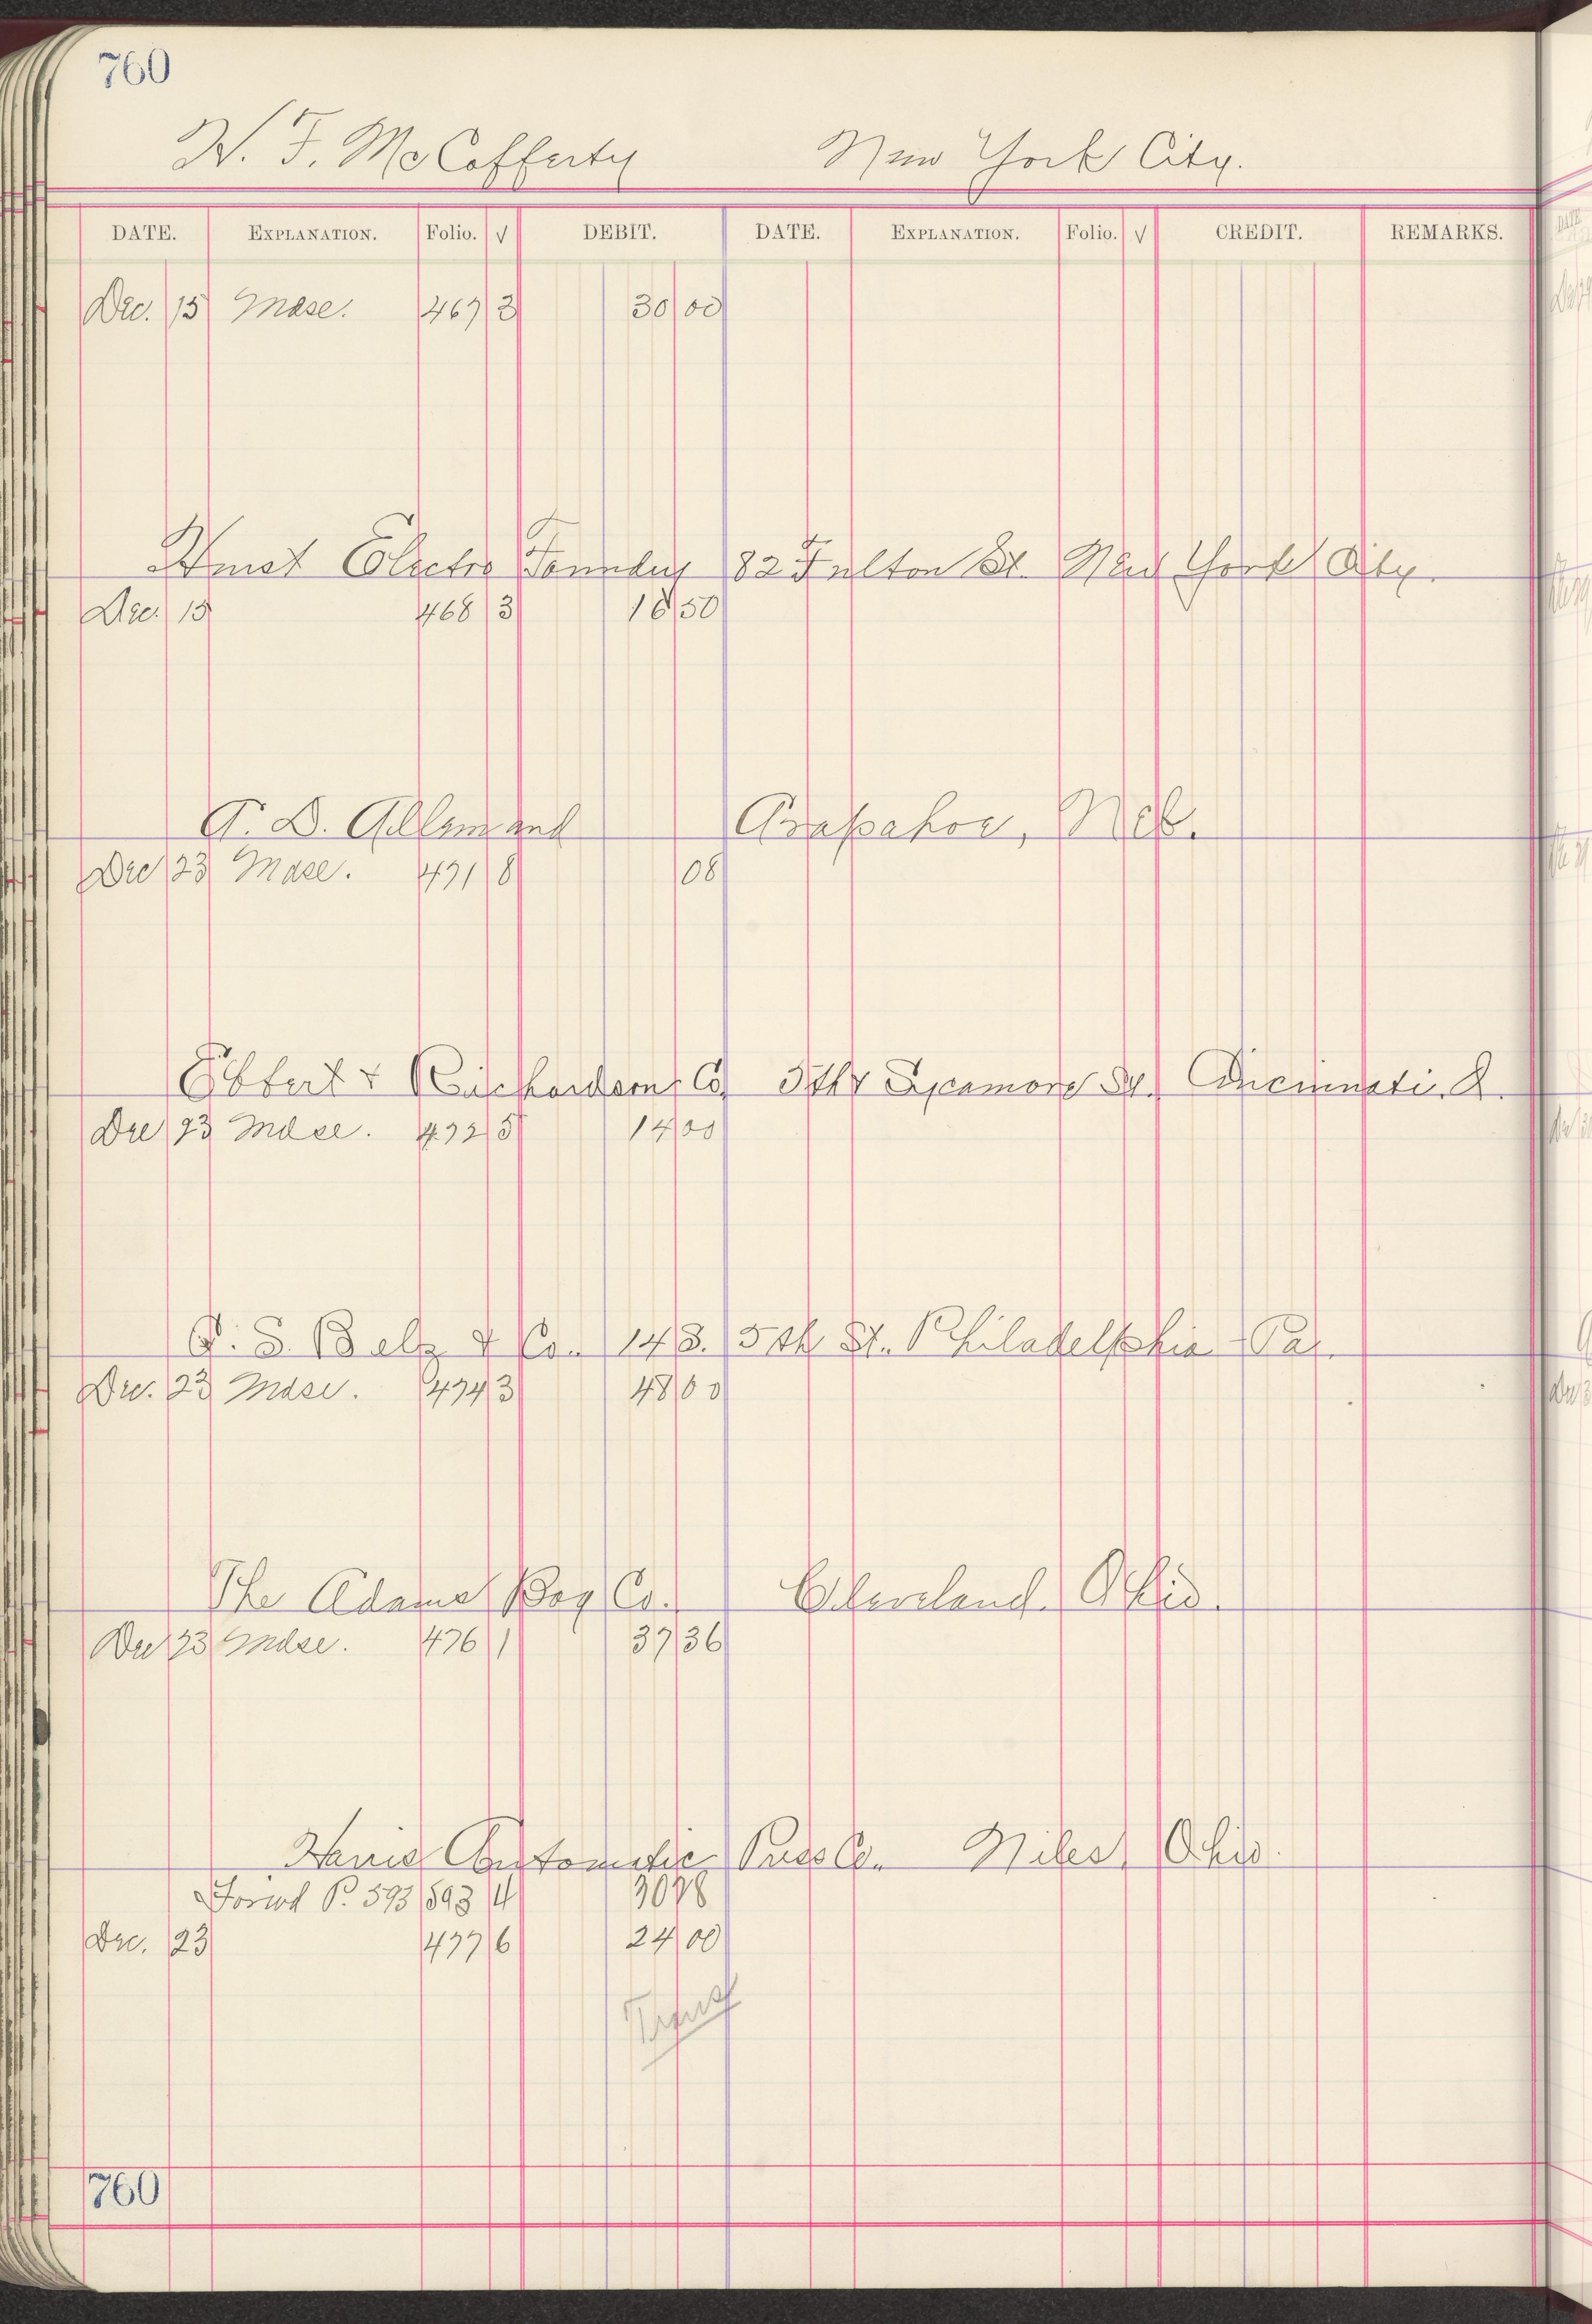 760
W. F. McCafferty New York City.
DATE. EXPLANATION. Folio. √ DEBIT. DATE. EXPLANATION. Folio. √ CREDIT. REMARKS.
Dec. 15 Mdse. 467 3 30 00
Electro Foundry 82 Fulton St. New York City.
Dec. 15 468 3 18 50
A. D. Allemand Arapahoe, Neb.
Dec 23 Mdse. 471 8 08
Ebbert & Richardson Co. 5th & Sycamore St. Cincinnati. O.
Dec 23 Mdse. 472 5 14 00
S. Belz & Co. 143. 5th St. Philadelphia Pa.
Dec. 23 Mdse. 474 3 48 00
The Adams Bag Co. Cleveland. Ohio.
Dec 23 Mdse. 476 1 37 36
Harris Automatic Press Co. Niles, Ohio.
Forwd P. 593 593 4 30 78
Dec. 23 477 6 24 00
Trans
760